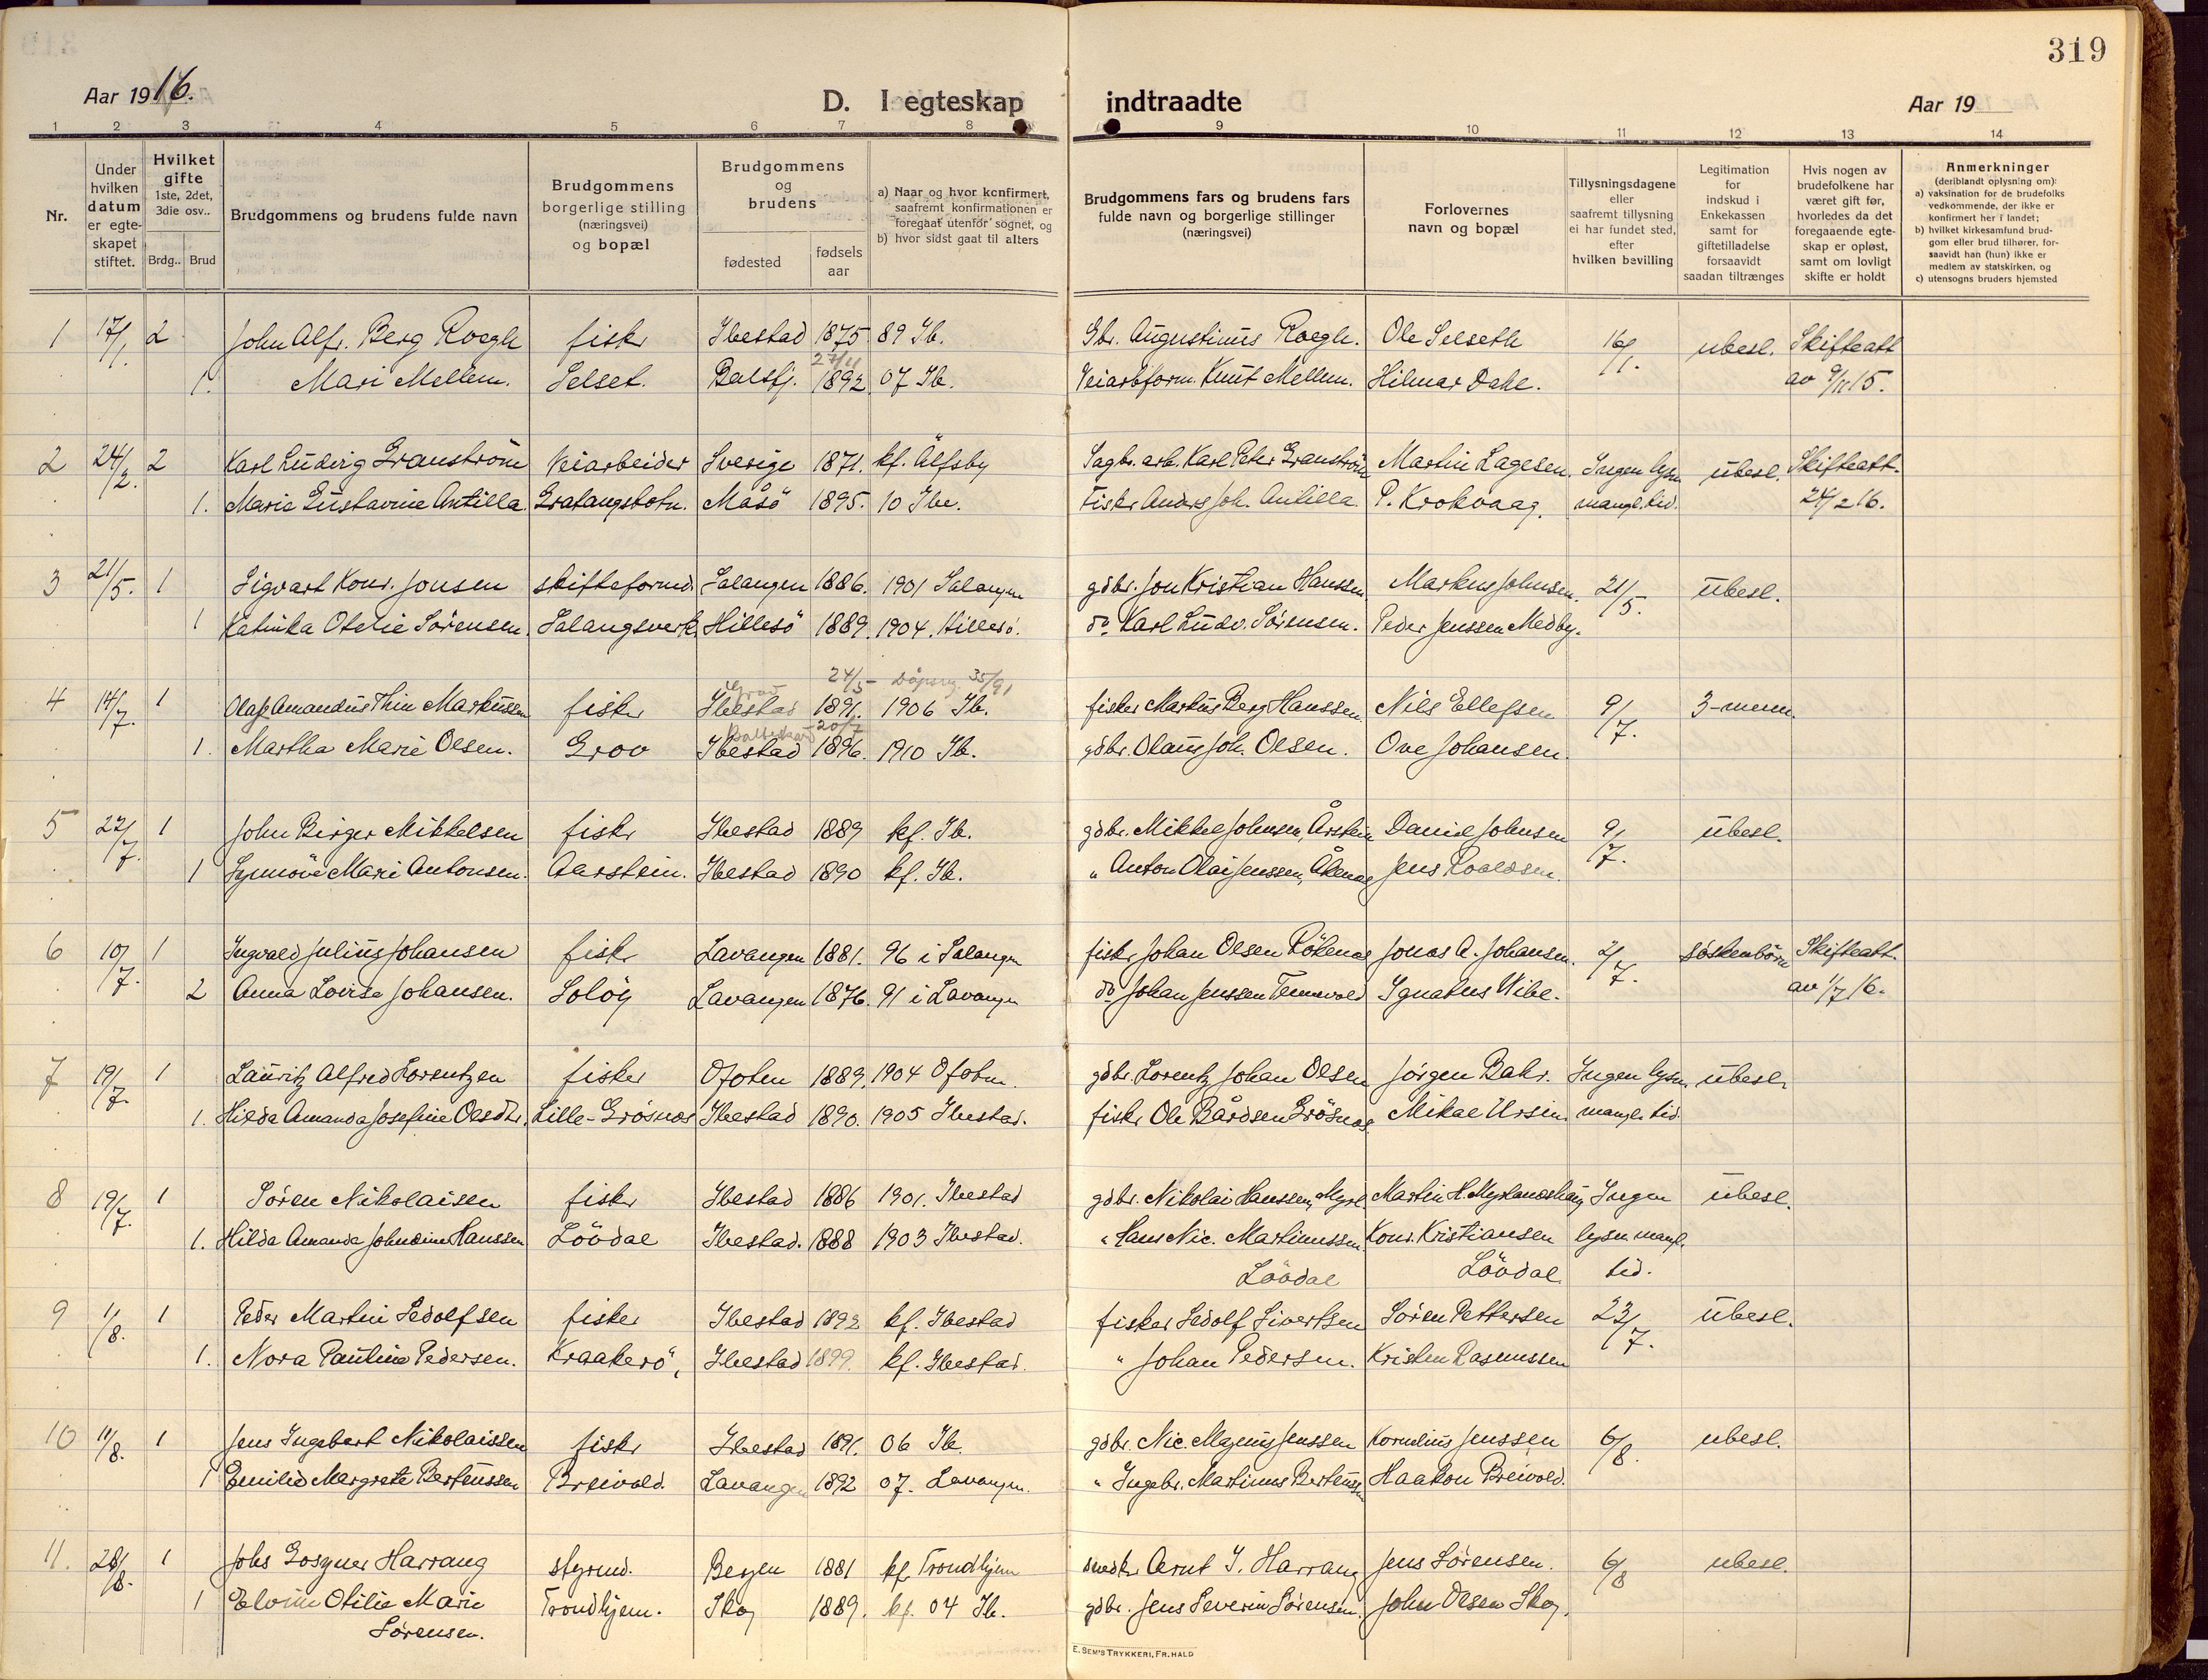 319
Aar 1916.
D. I egteskap indtraadte
Aar 19
1 2 3 4 5 6 7 8 9 10 11 12 13 14
Nr.
Under hvilken datum er egteskapet stiftet.
Hvilket gifte 1ste, 2det, 3die osv..
Brdg.. Brud
Brudgommens og brudens fulde navn
Brudgommens borgerlige stilling (næringsvei) og bopæl
Brudgommens og brudens
fødested
fødsels aar
a) Naar og hvor konfirmert, saafremt konfirmationen er foregaat utenfor sognet, og
b) hvor sidst gaat til alters
Brudgommens fars og brudens fars fulde navn og borgerlige stillinger (næringsvei)
Forlovernes navn og bopæl
Tillysningsdagene eller saafremt tillysning ei har fundet sted, efter hvilken bevilling
Legitimation for indskud i Enkekassen samt for giftetilladelse forsaavidt saadan tiltrænges
Hvis nogen av brudefolkene har været gift før, hvorledes da det foregaaende egteskap er opløst, samt om lovligt skifte er holdt
Anmerkninger (deriblandt oplysning om):
a) vaksination for de brudefolks vedkommende, der ikke er konfirmert her i landet;
b) hvilket kirkesamfund brudgom eller brud tilhører, forsaavidt han (hun) ikke er medlem av statskirken, og
c) utensogns bruders hjemsted
1 17/1 2 John Alfr. Berg Roegh fisker Ibestad 1875 89 Ib. Gbr. Augustinus Roegh. Ole Selseth 16/1. ubesl. Skifteatt
27/11
1. Mari Mellem. Selset. Balsfj. 1892 07 Ib. Veiarbform. Knut Mellem. Hilmar Dahl. av 9/11 15.
2 24/2. 2 Karl Ludvig Granström Veiarbeider Sverige 1871. kf. Älfsby Sagbr. arb. Karl Peter Granström Martin Lagesen. Ingen lysn ubesl. Skifteatt.
1. Marie Gustavine Antilla Gratangsbotn. Måsö 1895. 10 Ibe. Fisker Anders Joh. Antilla. P. Krokvaag. mangl. tid. 24/2 16.
3 21/5. 1 Sigvart Konr. Jonsen skifteformd. Salangen 1886. 1901 Salangen gdbr. Jon Kristian Hanssen Markus Johnsen. 21/5. Ubesl.
1 Katinka Otelie Sörensen Salangsverk Hillesö 1889. 1904. Hillesö. do Karl Ludv. Sörensen. Peder Jenssen Medby.
Grov 24/5 - Dåpsreg. 35/91
4 14/7. 1 Olaf Amandus Thin Markussen fisker Ibestad 1891. 1906 Ib. fisker Markus Berg Hanssen Nils Ellefsen 9/7. 3-menn.
20/7
1. Martha Marie Olsen. Grov Ibestad 1896. 1910 Ib. gdbr. Olaus Joh. Olsen. Ove Johansen.
5 22/7. 1 John Birger Mikkelsen fisker Ibestad 1889 kf. Ib. gdbr. Mikkel Johnsen, Årstein Daniel Johnsen 9/7. Ubesl.
1 Synnöve Marie Antonsen. Aarstein. Ibestad 1890 kf. Ib. " Anton Olai Jenssen, Jens Roaldsen.
6 10/7. 1 Ingvald Julius Johansen fisker Lavangen 1881. 96 i Salangen fisker Johan Olsen Rökenes Jonas A. Johansen. 2/7. söskenbörn Skifteatt.
2 Anna Lovisa Johansen. Solöy Lavangen 1876. 91 i Lavangen do Johan Jenssen Tennevold Ignatius Wibe. av 1/7 16.
7 19/7. 1 Lauritz Alfred Lorentzen fisker Ofoten 1889. 1904 Ofoten. gdbr. Lorentz Johan Olsen Jörgen Bakr. Ingen lysn. ubesl.
1. Hilda Amanda Josefine Olsdtr. Lille-Grösnes Ibestad 1890. 1905 Ibestad. fisker Ole Bårdsen Grösnes Mikal Ursin. mangl. tid.
8 19/7. 1 Sören Nikolaisen fisker Ibestad 1886 1901. Ibestad gdbr. Nikolai Hanssen, Myrl. Martin H. Myrlandshaug Ingen ubesl.
1. Hilda Amanda Johndine Hanssen Lövdal Ibestad. 1888 1903 Ibestad. " Hans Nic. Martinussen Konr. Kristiansen lysn. mangl.
Lövdal Lövdal tid.
9 1/8. 1 Peder Martin Sedolfsen fisker Ibestad 1892 kf. Ibestad fisker Sedolf Sivertsen Sören Pettersen 23/7. Ubesl.
1. Nora Pauline Pedersen. Kraakerö, Ibestad 1899. kf. Ibestad. " Johan Pedersen. Kristen Rasmussen
10 11/8. 1 Jens Ingebert Nikolaissen fisker Ibestad 1891. 06 Ib. gdbr. Nic. Magnus Jenssen Kornelius Jenssen 6/8. ubesl.
1 Emilie Margrete Berteussen Breivold. Lavangen 1892 07. Lavangen. " Ingebr. Martinus Berteussen Haakon Breivold.
11. 28/8. 1 Johs Gosyner Harrang styrmd. Bergen 1881 kf. Trondhjem snedker Arnt J. Harrang Jens Sörensen. 6/8 ubesl.
1 Elvine Otilie Marie Trondhjem. Skog 1889. kf. 04 Ib. gdbr. Jens Severin Sörensen. John Olsen Skog.
Sörensen.
E. SEM'S TRYKKERI, FR.HALD